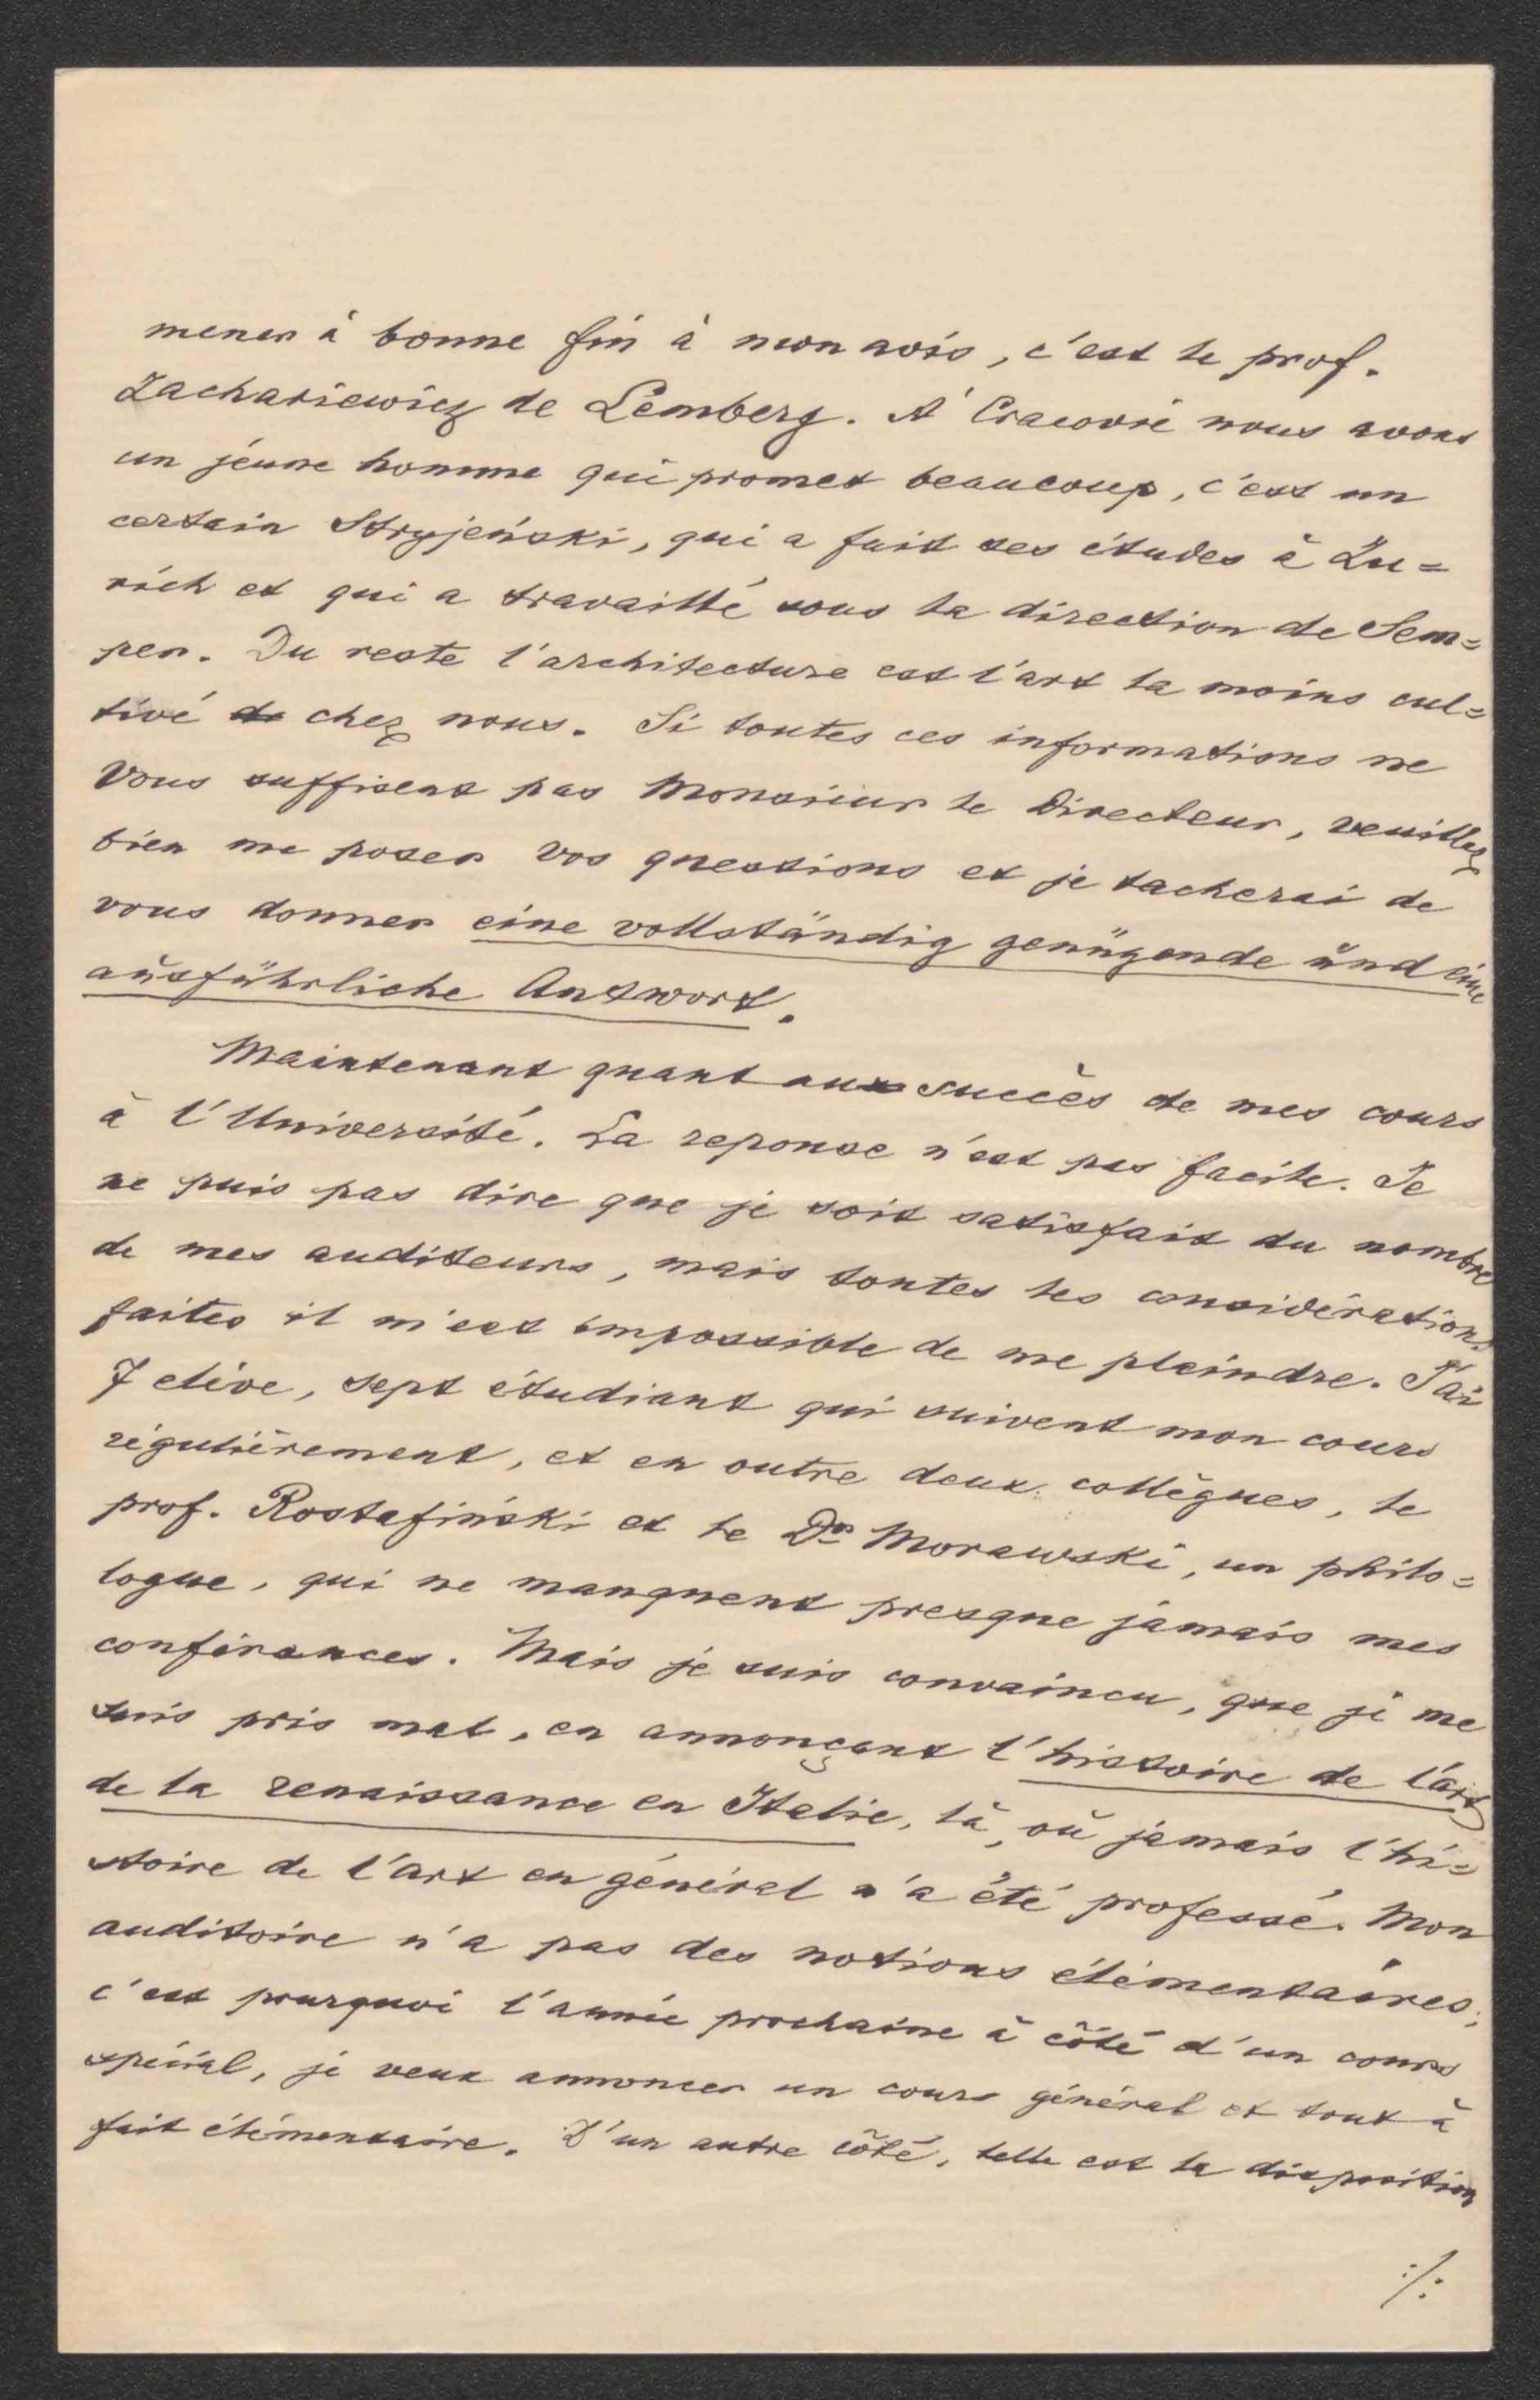 mener à bonne fin à mon avis, c'est le prof.
Zachariewicz de Lemberg. A' Cracovie nous avons
un jéune homme qui promet beaucoup, c'est un
certain Stryjeński, qui a fait ses études à Zu=
rich et qui a travaillé sous la direction de Sem=
per. Du reste l'architecture est l'art la moins cul=
tivé de chez nous. Si toutes ces informations ne
Vous suffisent pas Monsieur le Directeur, veuillez
bien me poser vos questions et je tacherai de
vous donner eine vollständig genügende ŭnd eine
aŭsführliche Antwort.
Maintenant quant aux succès de mes cours
à l'Université. La reponse n'est pas facile. Je
ne puis pas dire que je soit satisfait du nombre
de mes auditeurs, mais toutes les considérations
faites il m'est impossible de me pleindre. J'ai
7 elève, sept étudiant qui suivent mon cours
régulièrement, et en outre deux collègues, le
prof. Rostafiński et le Dr Morawski, un philo=
logue, qui ne manquent presque jamais mes
conférances. Mais je suis convaincu, que je me
suis pris mal, en annonçant l'histoire de l'art
de la renaissance en Italie, là, où jamais l'hi=
stoire de l'art en général n'a été professé. Mon
auditoire n'a pas des notions élémentaires;
c'est pourquoi l'année prochaine à côté d'un cours
spécial, je veux annoncer un cours général et tout à
fait élémentaire. D'un autre côté, telle est la disposition
:/: